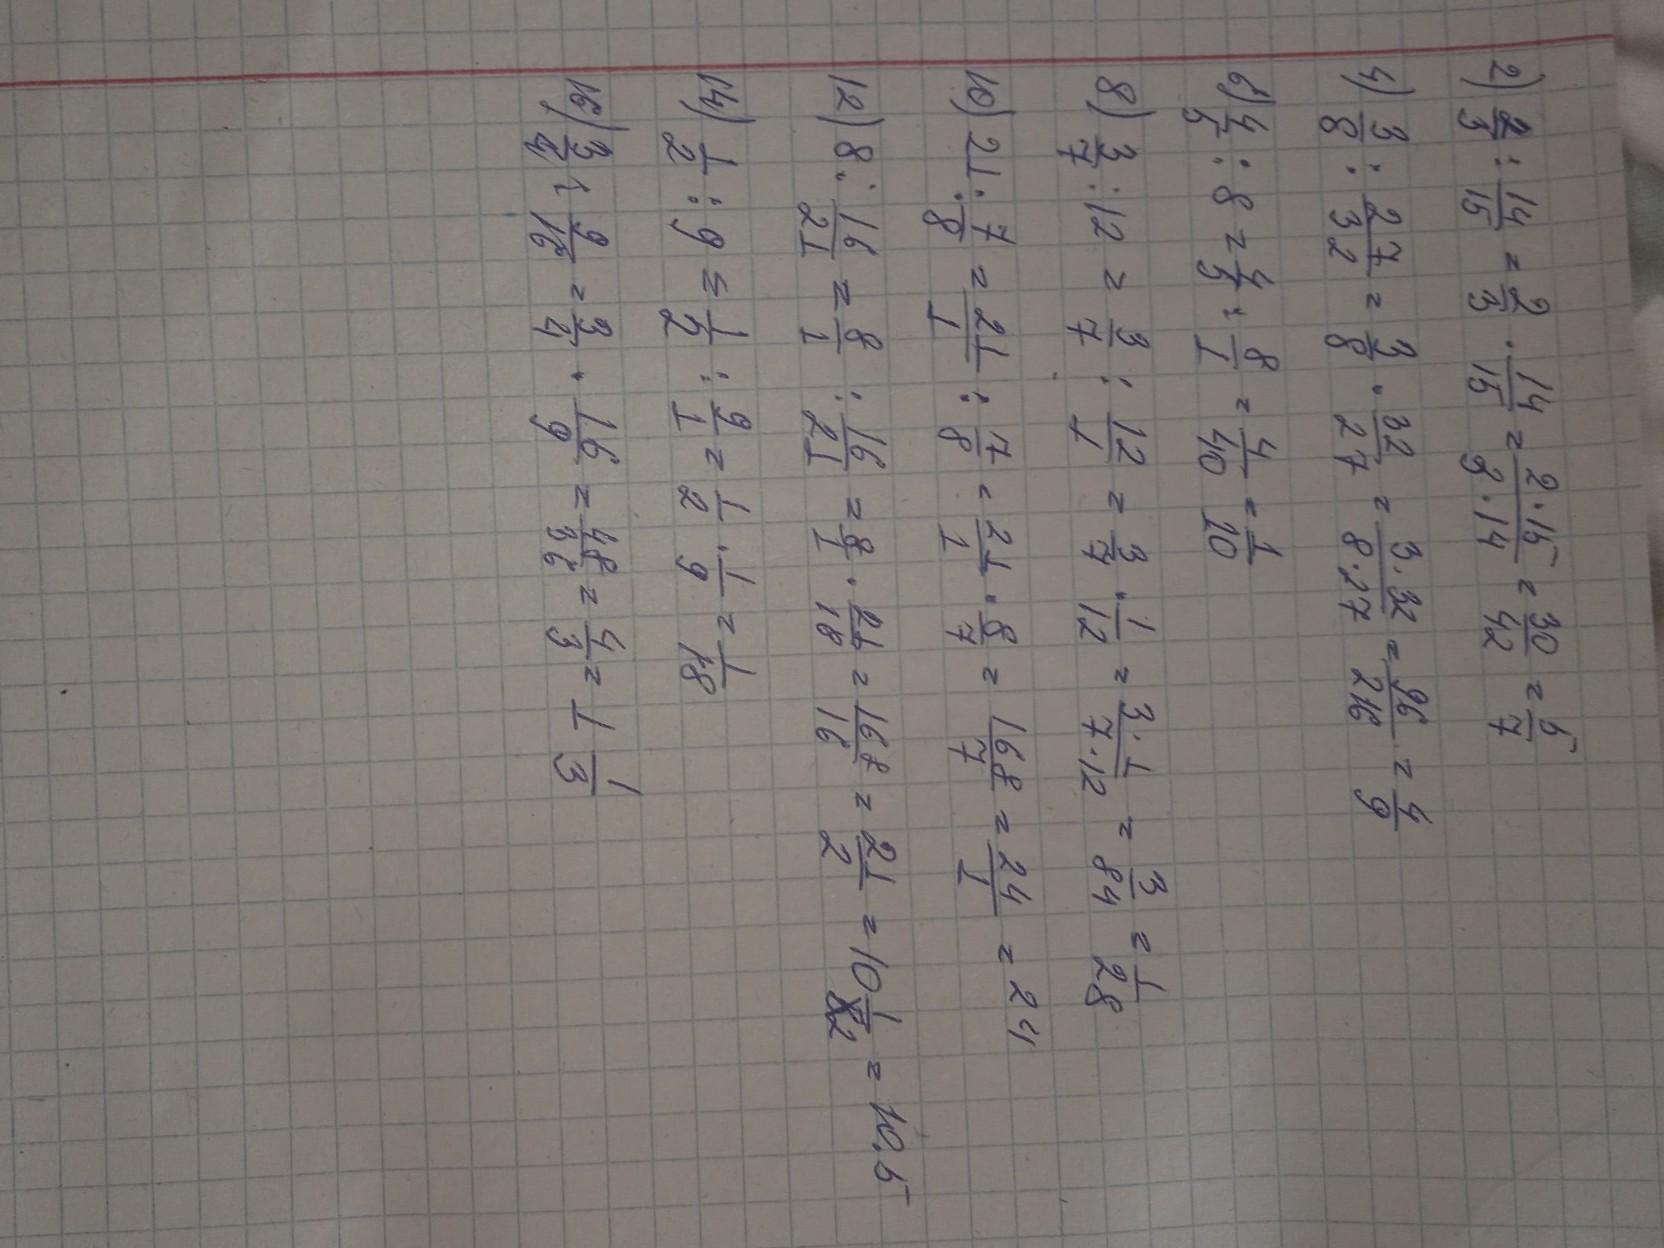 2) 2/3 : 14/15 = 2/3 · 14/15 = 2·15/3·14 = 30/42 = 5/7
4) 3/8 : 27/32 = 3/8 · 32/27 = 3·32/8·27 = 96/216 = 4/9
6) 4/5 : 8 = 4/5 : 8/1 = 4/40 = 1/10
8) 3/7 : 12 = 3/7 : 12/1 = 3/7 · 1/12 = 3·1/7·12 = 3/84 = 1/28
10) 21 : 7/8 = 21/1 : 7/8 = 21/1 · 8/7 = 168/7 = 24/1 = 24
12) 8 : 16/21 = 8/1 : 16/21 = 8/1 · 21/18 = 168/16 = 21/2 = 10 1/2 = 10.5
14) 1/2 : 9 = 1/2 : 9/1 = 1/2 · 1/9 = 1/18
16) 3/4 : 9/16 = 3/4 · 16/9 = 48/36 = 4/3 = 1 1/3